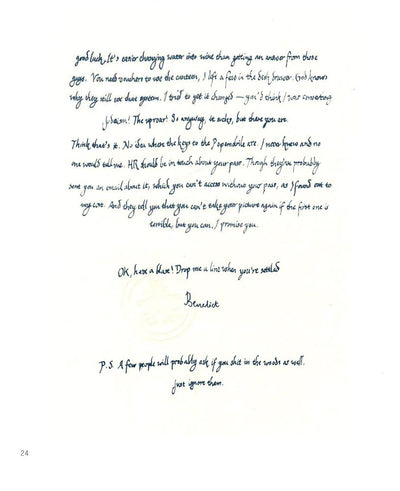 good luck, It's easier changing water into wine than getting an answer from those
guys. You need vouchers to use the canteen, I left a few in the desk drawer. God knows
why they still use that system. I tried to get it changed – you'd think I was converting
to Islam! The uproar! So anyway, it sucks, but there you are.
Think that's it. No idea where the keys to the Popemobile are. I never knew and no
one would tell me. HR should be in touch about your pass. Though they've probably
sent you an email about it, which you can't access without your pass, as I found out to
my cost. And they tell you that you can't take your picture again if the first one is
terrible, but you can, I promise you.
OK, have a blast! Drop me a line when you're settled
Benedict
P.S. A few people will probably ask if you shit in the woods as well.
Just ignore them.
24